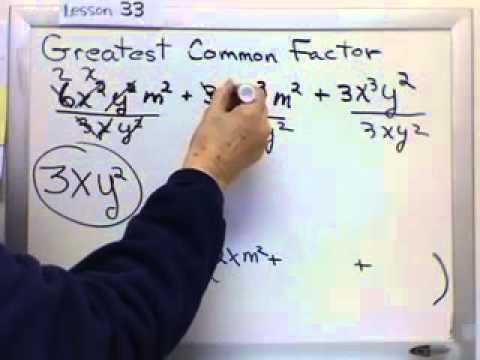 Lesson 33
Greatest Common Factor
2 x
6x² y² m² + 3 ³m² + 3x³y²
3xy² y² 3xy²
3xy²
xm² + + )